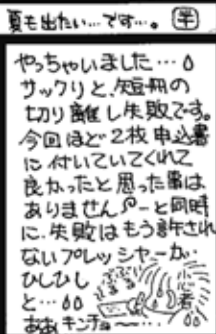 夏も出たい…です…。 半
やっちゃいました…
サックリと、短冊の
切り離し失敗です。
今回ほど2枚申込書
に付いていてくれて
良かったと思った事は
ありません ーと同時
に、失敗はもう許され
ないプレッシャーが
ひしひし
と…
小心者
ああキンチョ〜…